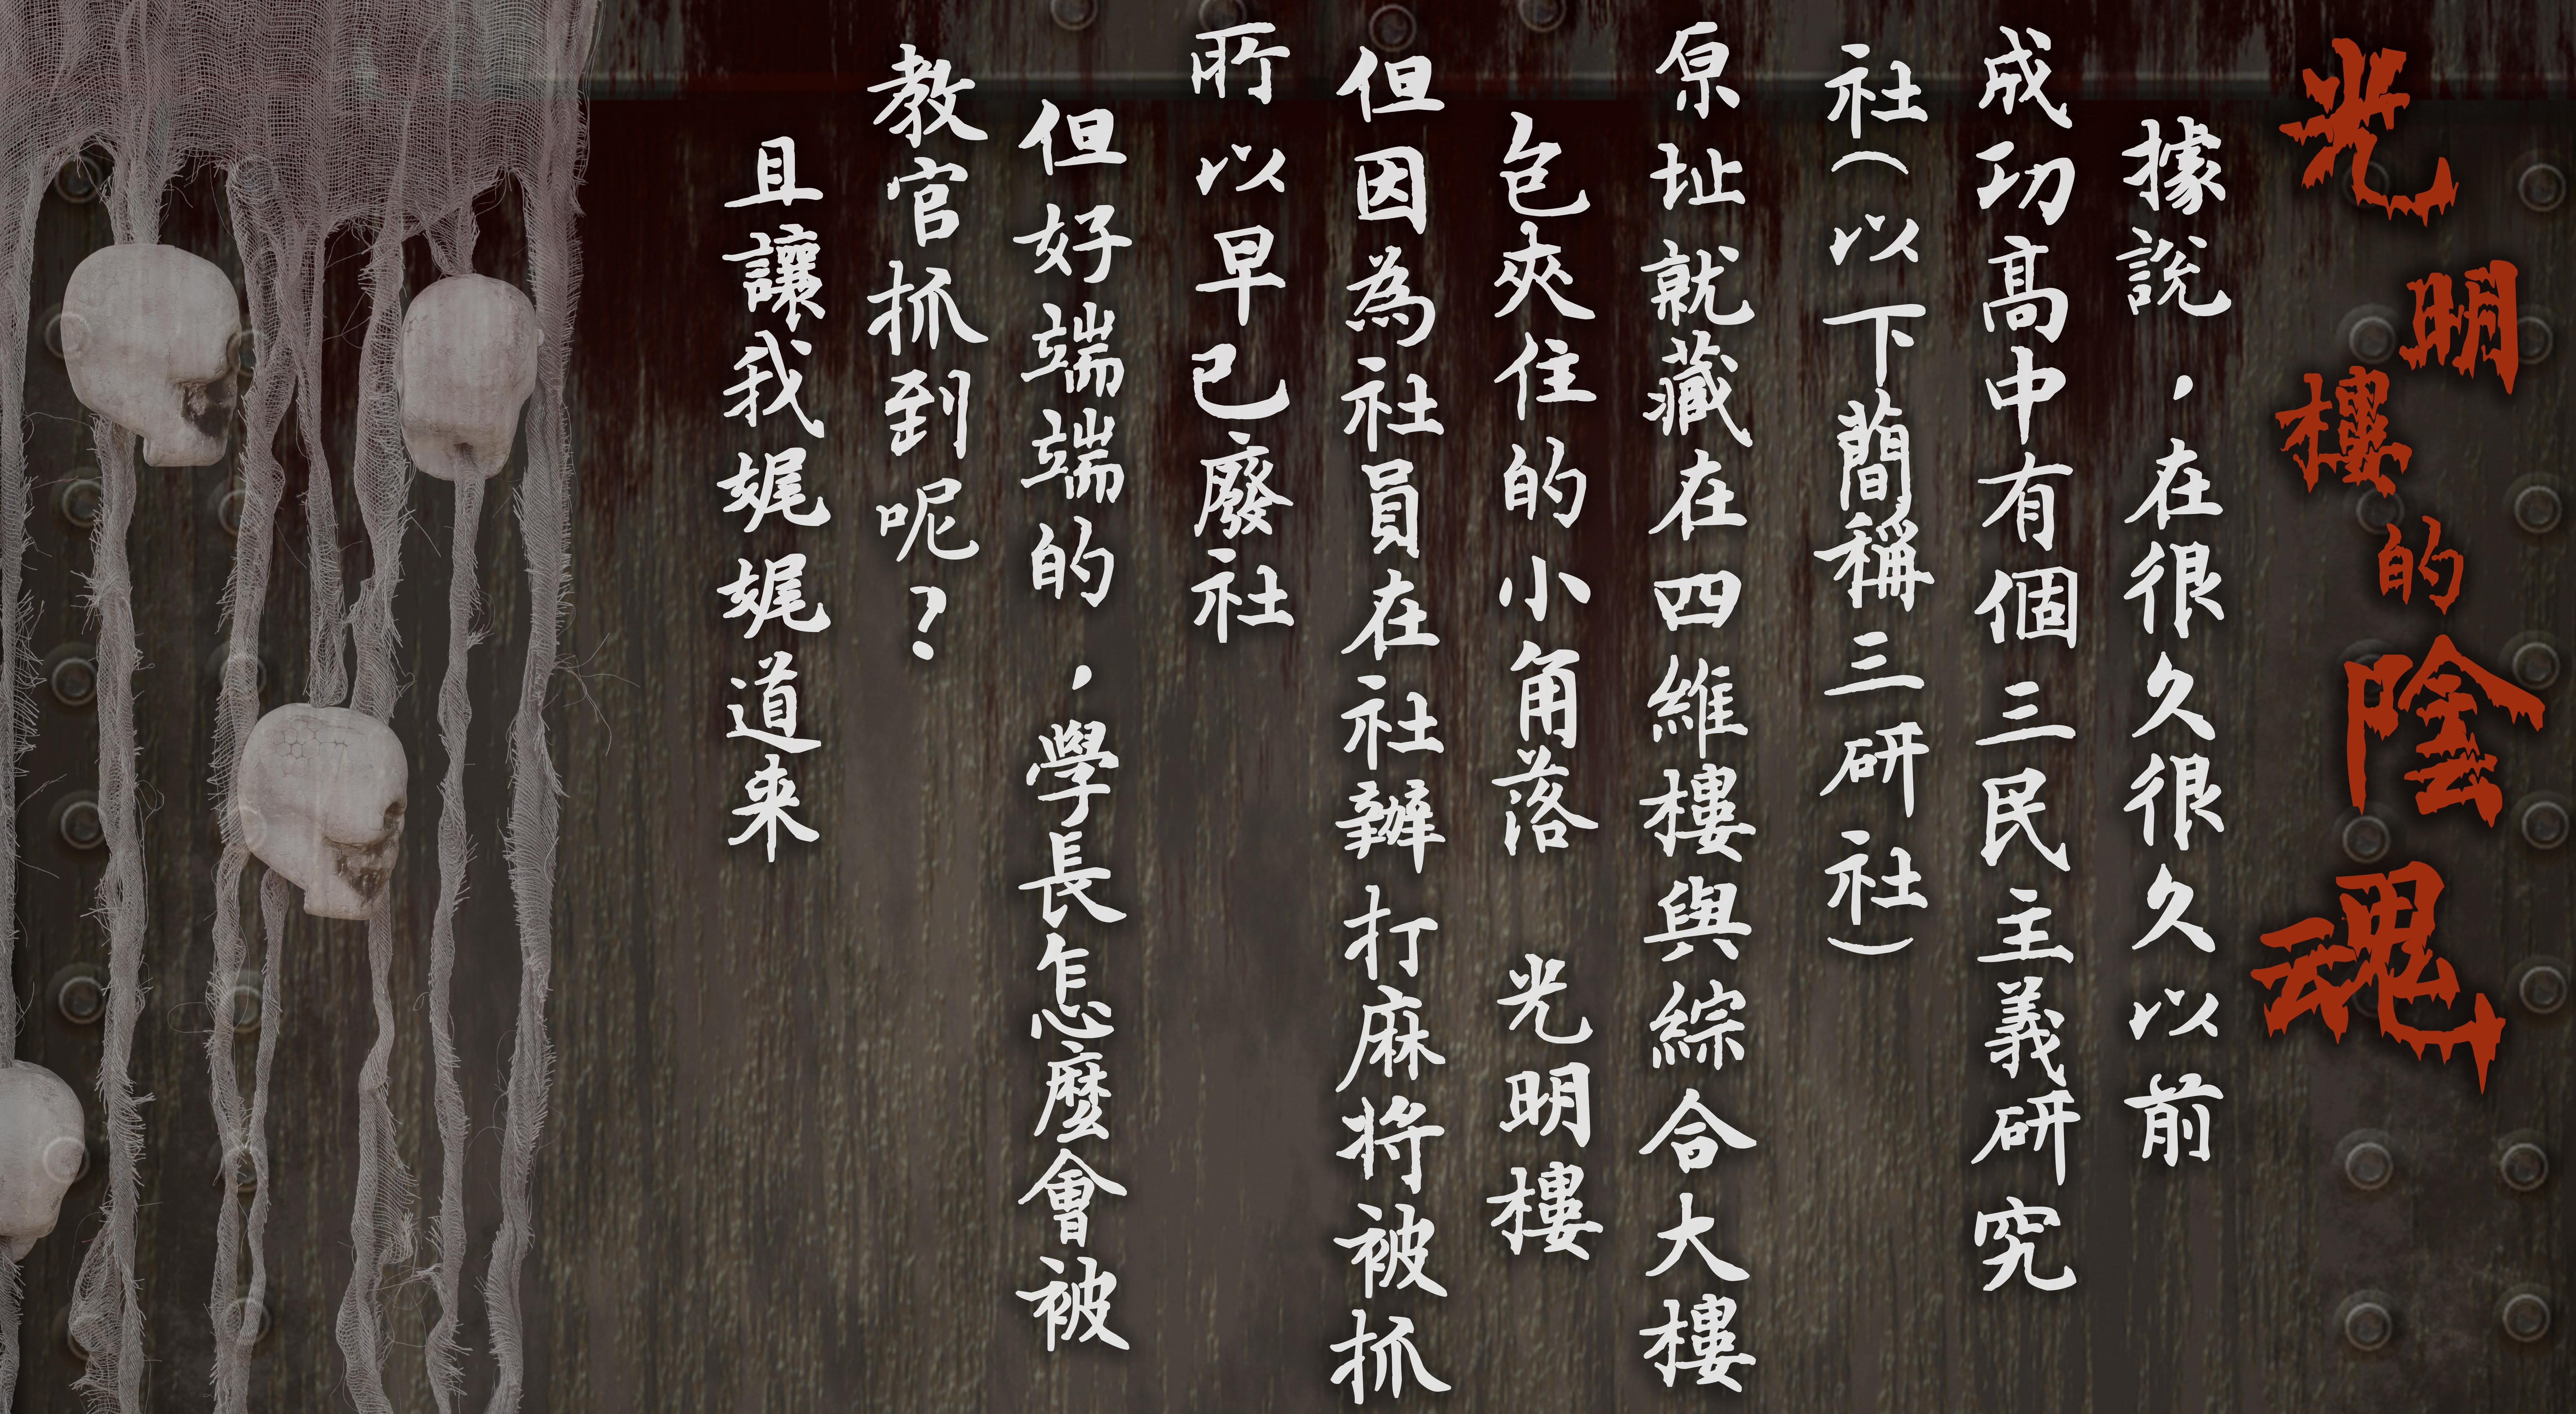 光明樓的陰魂
據說，在很久很久以前
成功高中有個三民主義研究
社（以下簡稱三研社）
原址就藏在四維樓與綜合大樓
包夾住的小角落　光明樓
但因為社員在社辦打麻將被抓
所以早已廢社
但好端端的，學長怎麼會被
教官抓到呢？
且讓我娓娓道来